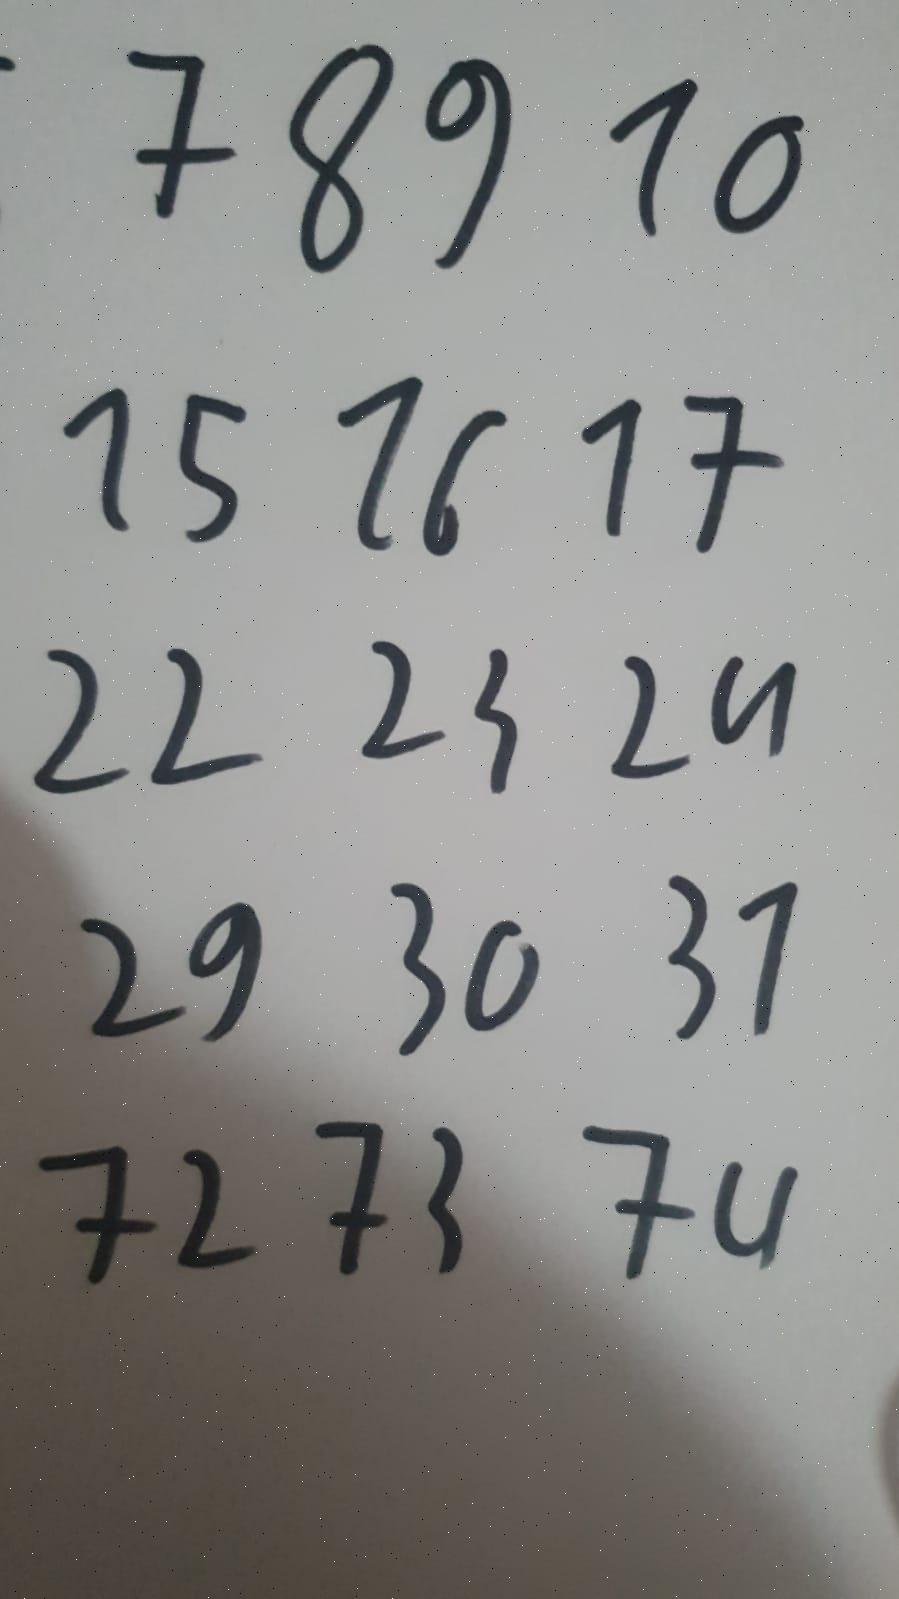 7 8 9 10
15 16 17
22 23 24
29 30 31
72 73 74